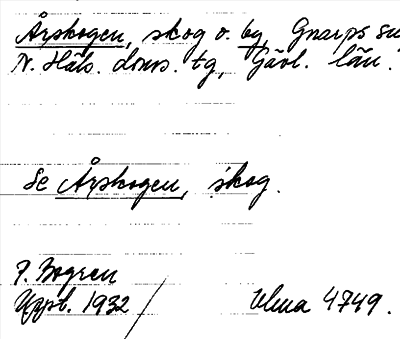 Årskogen, skog o. by, Gnarps su
N. Häls. doms. tg, Gävl. län.
Se Årskogen, skog.
P. Bogren
Uppt. 1932 / Ulma 4749.